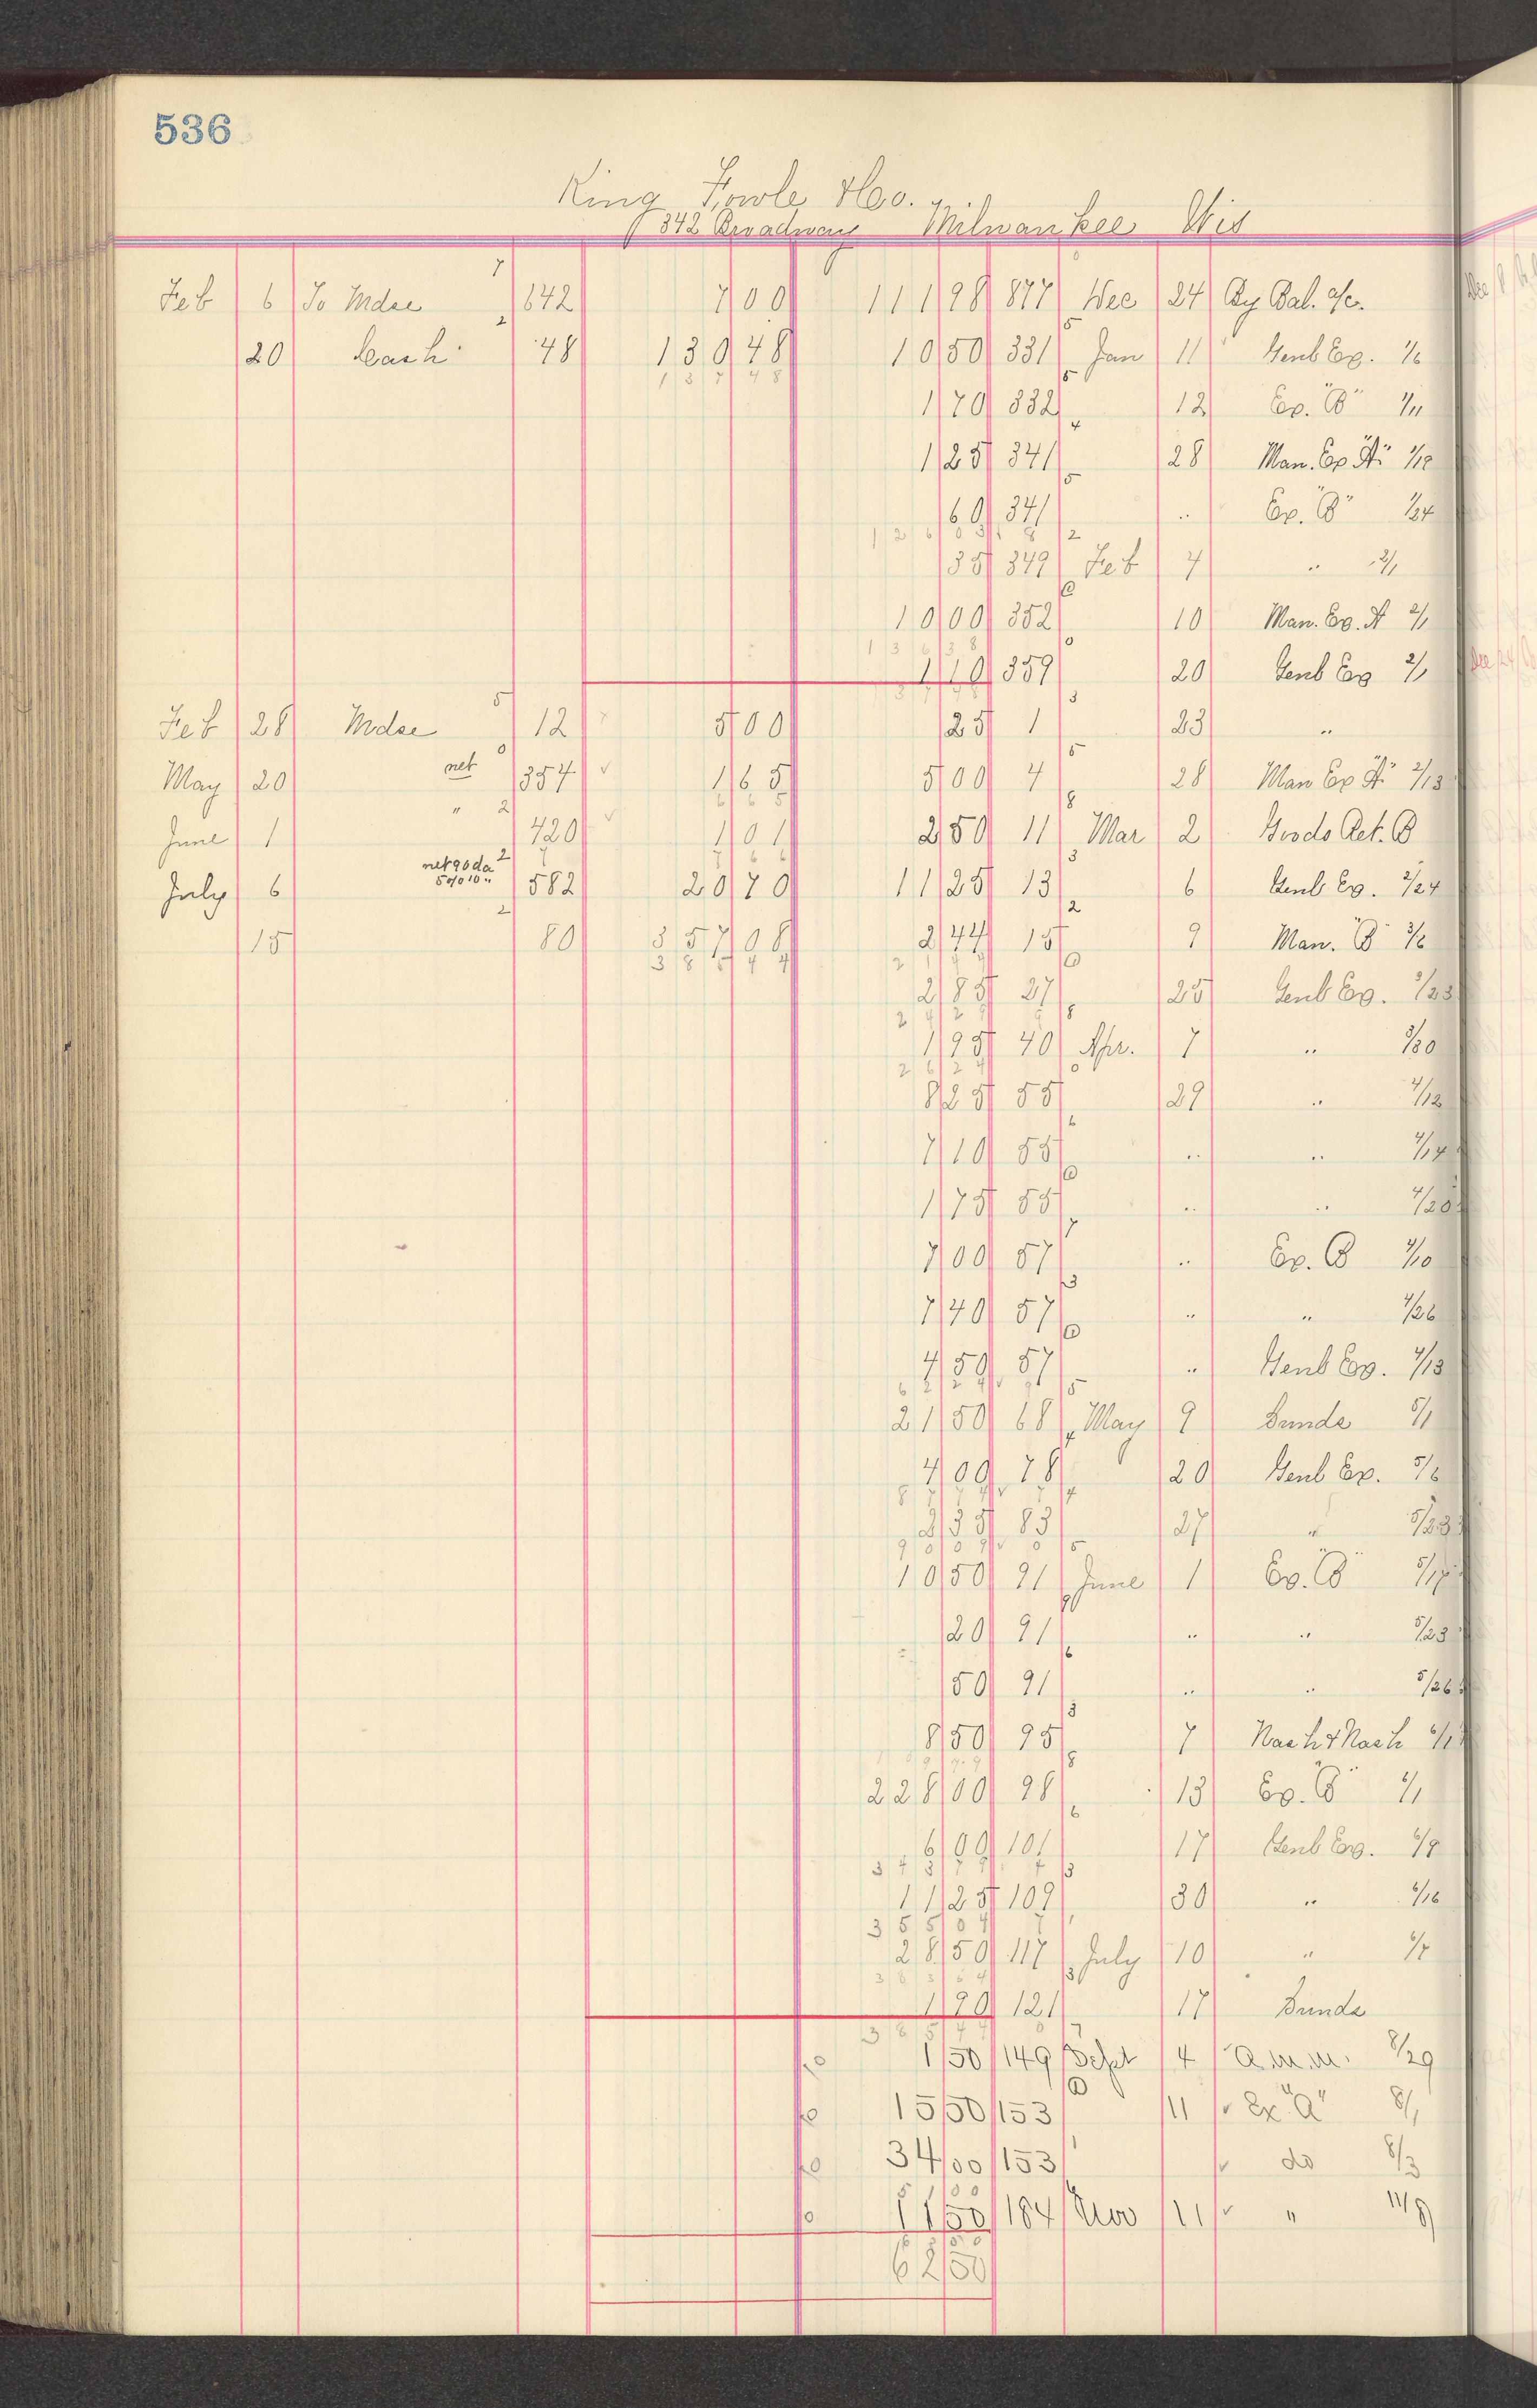 536
King Fowle & Co.
342 Broadway Milwaukee Wis
Feb 6 To Mdse 642 7 00 111 98 877 Dec 24 By Bal. a/c.
20 Cash 48 130 48 10 50 331 Jan 11 Genl Ex. 1/6
137 48
1 70 332 12 Ex. "B" 1/11
1 25 341 28 Man. Ex "A" 1/19
60 341 " Ex. "B" 1/24
35 349 Feb 4 " 2/1
10 00 352 10 Man. Ex. A 2/1
136 38
1 10 359 20 Genl Ex 2/1
Feb 28 Mdse 12 5 00 25 1 23 "
May 20 net 354 1 65 5 00 4 28 Man Ex "A" 2/13
June 1 " 420 1 01 2 50 11 Mar 2 Goods Ret. B
July 6 net 90 da 582 20 70 11 25 13 6 Genl Ex. 2/24
5% 10 "
15 80 357 08 2 44 15 9 Man. "B" 3/6
385 44
2 85 27 25 Genl Ex. 3/23
1 95 40 Apr. 7 " 3/30
8 25 55 29 " 4/12
7 10 55 " " 4/14
1 75 55 " " 4/20
7 00 57 " Ex. B 4/10
7 40 57 " " 4/26
4 50 57 " Genl Ex. 4/13
21 50 68 May 9 Bunde 5/1
4 00 78 20 Genl Ex. 5/6
2 35 83 27 " 5/23
10 50 91 June 1 Ex. "B" 5/17
20 91 " " 5/23
50 91 " " 5/26
8 50 95 7 Nash & Nash 6/1
228 00 98 13 Ex. "B" 6/1
6 00 101 17 Genl Ex. 6/9
11 25 109 30 " 6/16
355 04
28 50 117 July 10 "
383 54
1 90 121 17 Bunde
1 50 149 Sept 4 A m m. 8/29
15 50 153 11 Ex "A" 8/1
34 00 153 do 8/3
51 00
11 50 184 Nov 11 " 11/9
62 50